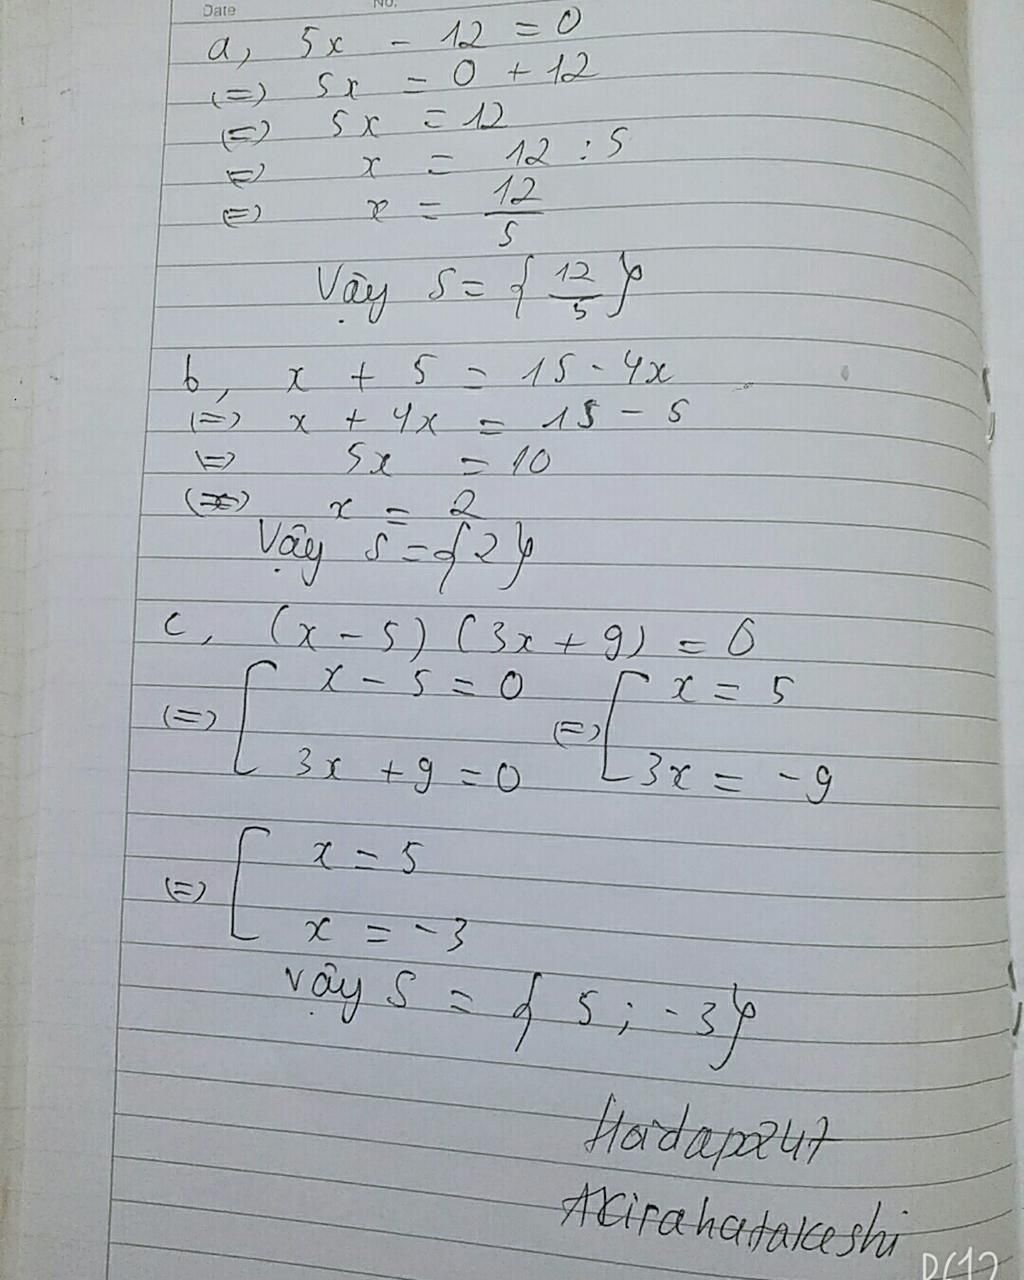 Date No.
a, 5x - 12 = 0
(=) 5x = 0 + 12
(=) 5x = 12
(=) x = 12 : 5
(=) x = 12/5
Vậy S = { 12/5 }
b, x + 5 = 15 - 4x
(=) x + 4x = 15 - 5
(=) 5x = 10
(=) x = 2
Vậy S = {2}
c, (x - 5) (3x + 9) = 0
(=) [ x - 5 = 0 (=) [ x = 5
3x + 9 = 0 3x = -9
(=) [ x = 5
x = -3
Vậy S = { 5 ; -3}
Hoidap247
AKirahatakeshi